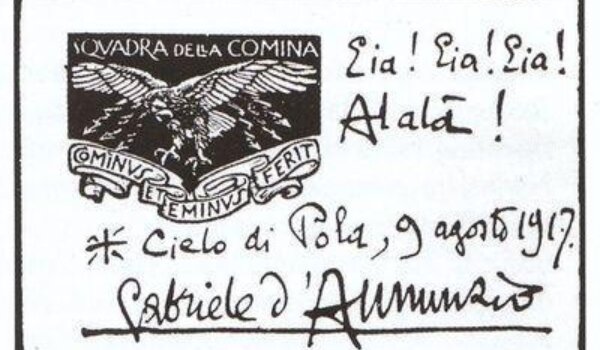 SQVADRA DELLA COMINA
COMINVS ET EMINVS FERIT
Eia! Eia! Eia!
Alalà!
Cielo di Pola, 9 agosto 1917.
Gabriele d'Annunzio